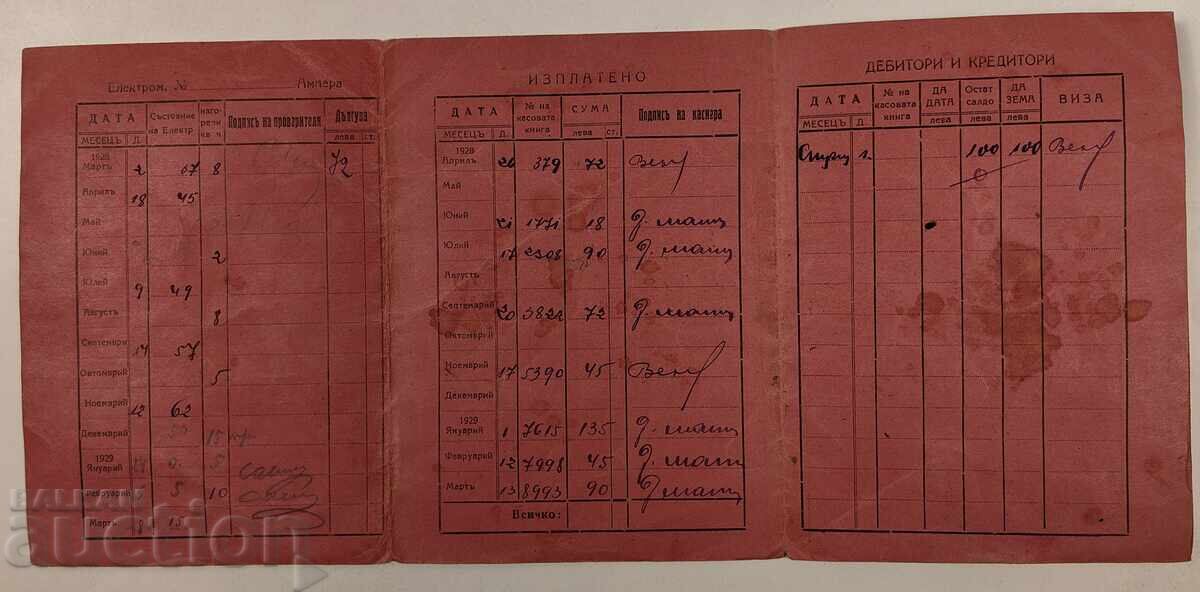 Електром. № Ампера
ДАТА Състояние на Електр. нагорели кв ч Подпись на проверителя Дългува
МЕСЕЦЪ Д. лева ст.
1928
Мартъ 2 37 8 72
Априлъ 18 45
Май
Юний 2
Юлий 9 49
Августъ 8
Септември 14 57
Октомврий 5
Ноемврий 12 62
Декемврий 15
1929
Януарий 5
Февруарий 5 10
Мартъ 15
ИЗПЛАТЕНО
ДАТА № на касовата книга СУМА Подпись на касиера
МЕСЕЦЪ Д. лева ст.
1928
Априлъ 20 379 72
Май
Юний 21 1771 18
Юлий 17 2308 90
Августъ
Септемврий 20 3822 72
Октомврий
Ноемврий 17 5390 45
Декемврий
1929
Януарий 1 7615 135
Февруарий 12 7998 45
Мартъ 13 8993 90
Всичко:
ДЕБИТОРИ И КРЕДИТОРИ
ДАТА № на касовата книга ДА ДАТА Остат салдо ДА ЗЕМА ВИЗА
МЕСЕЦЪ Д. лева лева лева
100 100
0
BALKAN
auction